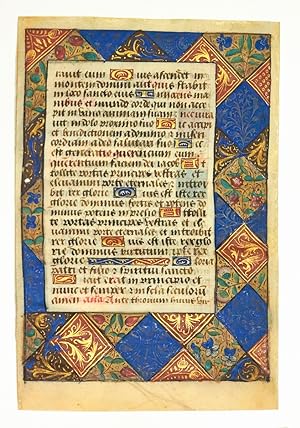 rauit eum Quis ascendet in
montem domini aut quis stabit
in loco sancto eius Innocens ma
nibus et mundo corde qui non acce
pit in vano animam suam nec iura
uit in dolo proximo suo Hic accipi
et benedictionem a domino et miseri
cordiam a deo salutari suo Hec
est generatio querentium eum
querentium faciem dei iacob At
tollite portas principes vestras et
eleuamini porte eternales et introi
bit rex glorie Quis est iste rex
glorie dominus fortis et potens do
minus potens in prelio Attolli
te portas principes vestras et e
leuamini porte eternales et introibit
rex glorie Quis est iste rex glo
rie dominus virtutum ipse est rex
glorie Gloria
patri et filio et spiritui sancto
Sicut erat in principio et
nunc et semper et in secula seculorum
amen